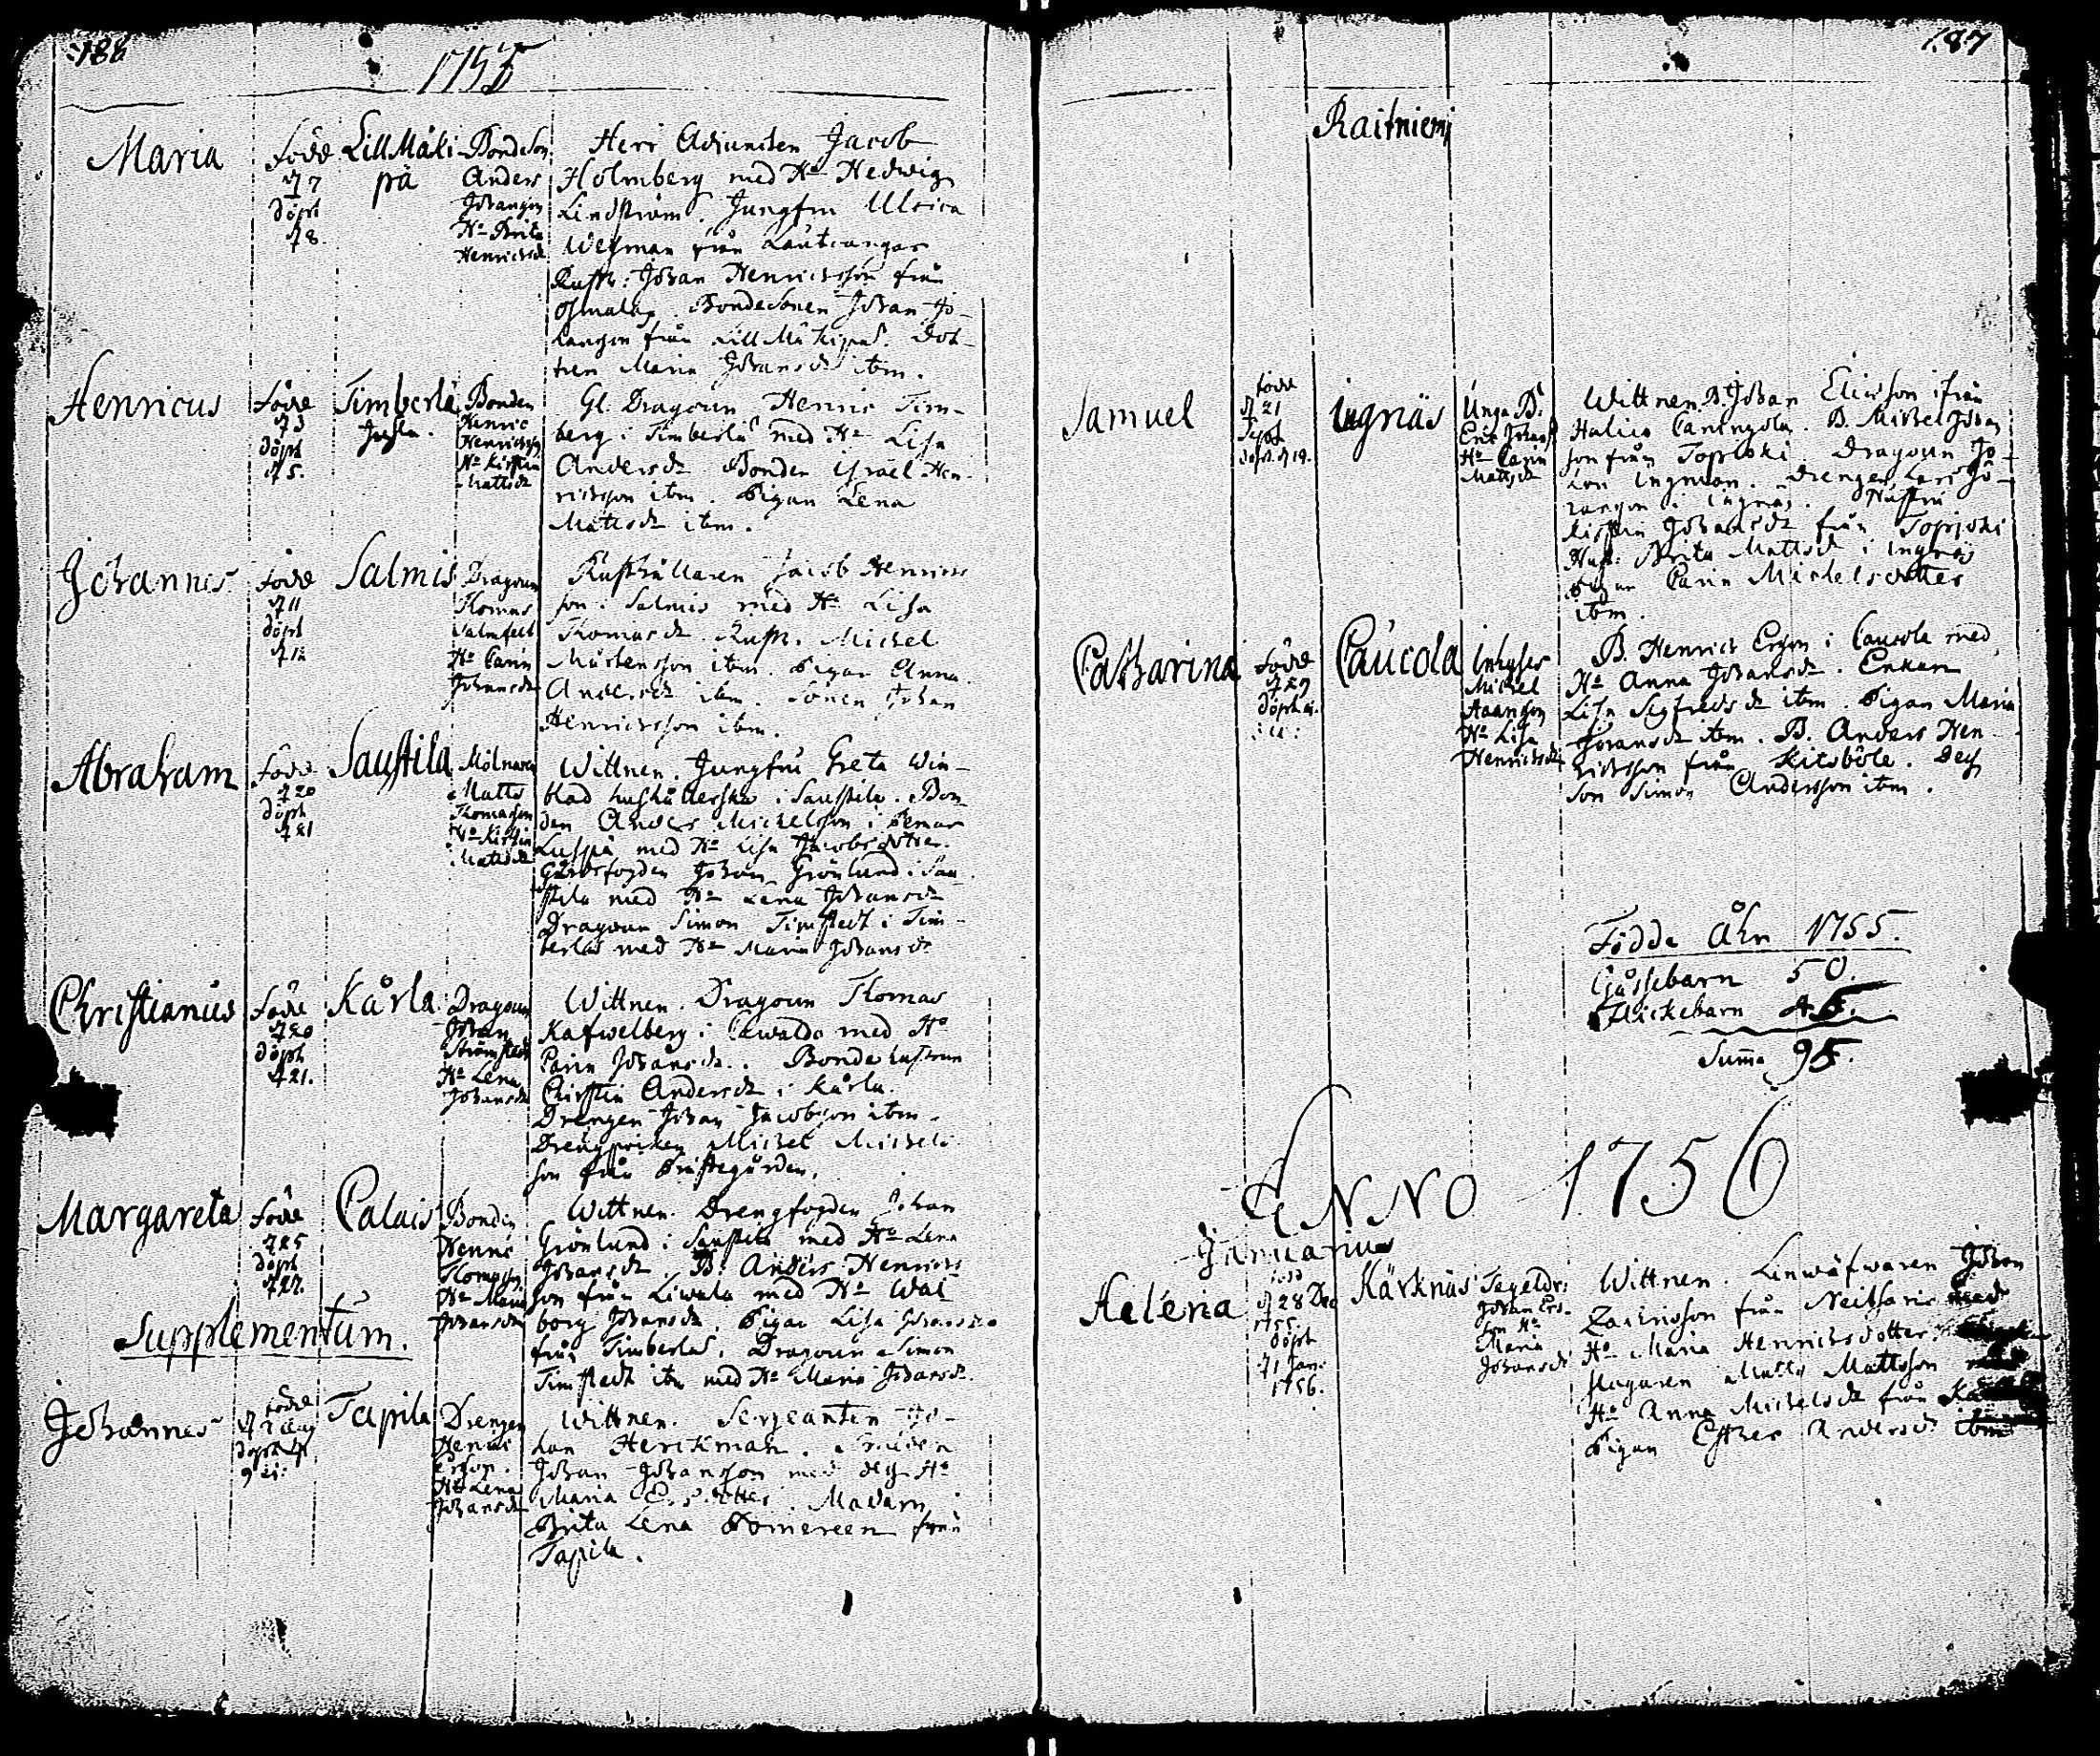 186
1755
Maria
Född
d 7
döpt
d 8.
Lill Mäki
pä
Bondeson
Anders
Johansson
Ho Brita
Henrichsdr
Herr Adiuncten Jacob
Holmberg med Ho Hedwig
Lindström. Jungfru Ulrica
Wegman från Lautcangas
Rusth: Johan Henrichsson från
Bondesonen Johan Jo-
hansson från Lill Mäkipä. Dot-
tren Maria Johansdr ibm.
Henricus
Född
d 3
döpt
d 5.
Timberla
Bonden
Henric
Henrichsson
Ho Kirstin
Mattsdr
Gl. Dragoun Henric Tim-
berg i Timberla med Ho Lisa
Andersdr Bonden Israel Hen-
richsson ibm. Pigan Lena
Mattsdr ibm.
Johannes
Född
d 11
döpt
d 12
Salmis
Dragoun
Thomas
Salmfelt
Ho Carin
Johansdr
Rusthållaren Jacob Henrics
son i Salmis med Ho Lisa
Thomasdr. Rusth. Michel
Mårtensson ibm. Pigan Anna
Andersdr ibm. Sonen Johan
Henrichsson ibm.
Abraham
Född
d 20
döpt
d 21
Saustila
Mölnaren
Matts
Thomasson
Ho Kirstin
Matsdr
Wittnen. Jungfru Greta Win-
blad hushållerska i Saustila. Bon-
den Anders Michelsson i Pemar
med Ho Lisa Jacobsdotter.
Gårdsfogden Johan Grönlund i Sau-
stila med Ho Lena Johansdr
Dragoun Simon Timstedt i Tim-
berla med Ho Maria Johansdr
Christianus
Född
d 20
döpt
d 21.
Kårla
Dragoun
Johan
Strömstedt
Ho Lena
Johansdr
Wittnen. Dragoun Thomas
Kafwelberg i Cawaldo med Ho
Carin Johansdr. Bonde hustrun
Chirstin Andersdr i Kårla.
Drengen Johan Jacobsson ibm.
Drengpoiken Michel Michels
son från Prästegården.
Margareta
Född
d 25
döpt
d 27.
Palais
Bonden
Henric
Thomasson
Ho Maria
Johansdr
Wittnen. Drengfogden Johan
Grönlund i Saustila med Ho Lena
Johansdr. B. Anders Henrics
son från Liwala med Ho Wal
borg Johansdr. Pigan Lisa Johansdr
från Timberla. Dragoun Simon
Timstedt ibm med Ho Maria Johansdr.
Supplementum.
Johannes
Född
d 7 Aug
döpt d
9 ej:
Tapila
Drengen
Henric
Erson.
Ho Lena
Johansdr
Wittnen. Sergeanten Jo-
han Herckman.
Johan Johansson med dess Ho
Maria Ersdotter. Madam
Brita Lena Pomereen från
Tapila.
187
Raitniemi
Samuel
Född
d 21
Sept
döpt d 19.
Ingnäs
Unga B:
Eric Johans
Ho Carin
Mattsdr
Wittnen. B. Johan Ericsson ifrån
Halico B. Michel Johan
son från Topjoki. Dragoun Jo-
han Ingman. Drengen Lars Jo-
hansson i Ingnäs. Hustru
Kirstin Johansdr från Topjoki
Hust: Brita Mattsdr i Ingnäs
Pigan Carin Michelsdotter
ibm.
Catharina
Född
d 29
döpt ej.
Caucola
Inhyses
Michel
Ho Lisa
Henrichsdr
B. Henrich Erson i Caucola med
Ho Anna Johansdr. Enkan
Lisa Sigfredsdr ibm. Pigan Maria
Johansdr ibm. B. Anders Hen-
richsson från Kitoböle. Dess
son Simon Andersson ibm.
Födde Åhr 1755.
Gåssebarn 50.
Flickebarn 45.
Summa 95.
ANNO 1756
Januarius
Helena
född
d 28 Dec
1755.
döpt
d 1 Jan:
1756.
Kärknäs
Tegeldr:
Johan Ers-
son Ho
Maria
Johansdr
Wittnen. Linwäfwaren Johan
Zachrisson från Neitsaric med
Ho Maria Henrichsdotter
Matts Mattsson
Ho Anna Michelsdr från
Pigan Esther Andersdr ibm